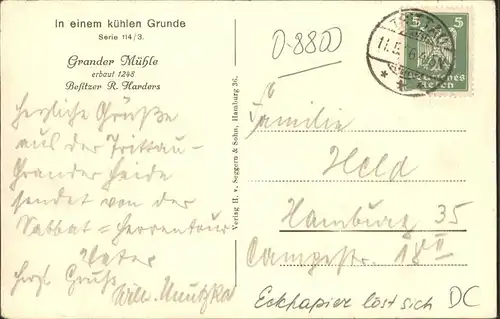 In einem kühlen Grunde
Serie 114/3.
Grander Mühle
erbaut 1248
Besitzer R. Harders
Herzliche Grüße
aus der Trittau-
Grander Heide
sendet von der
Sabbat = Herrentour
Vater
herzl. Gruß
Wilh.
Verlag H. v. Seggern & Sohn, Hamburg 36.
0-8800
TRITTAU
11.5.
5 5
Deutsches
Reich
Familie
Held
Hamburg 35
Campestr. 18 II
Eckpapier löst sich DC